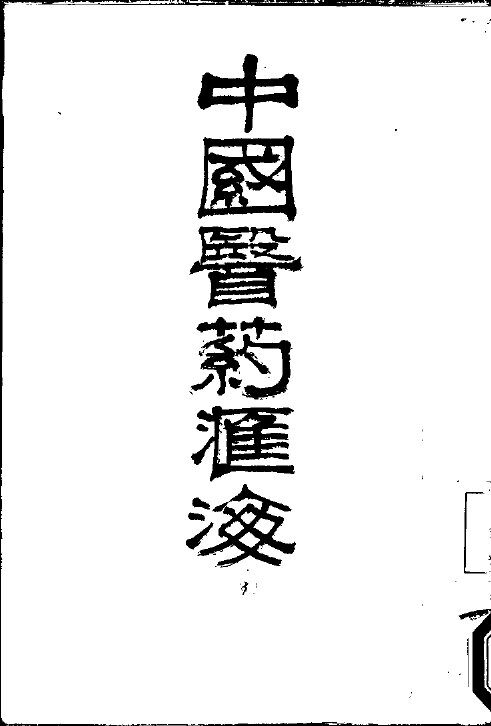 中國醫葯滙海